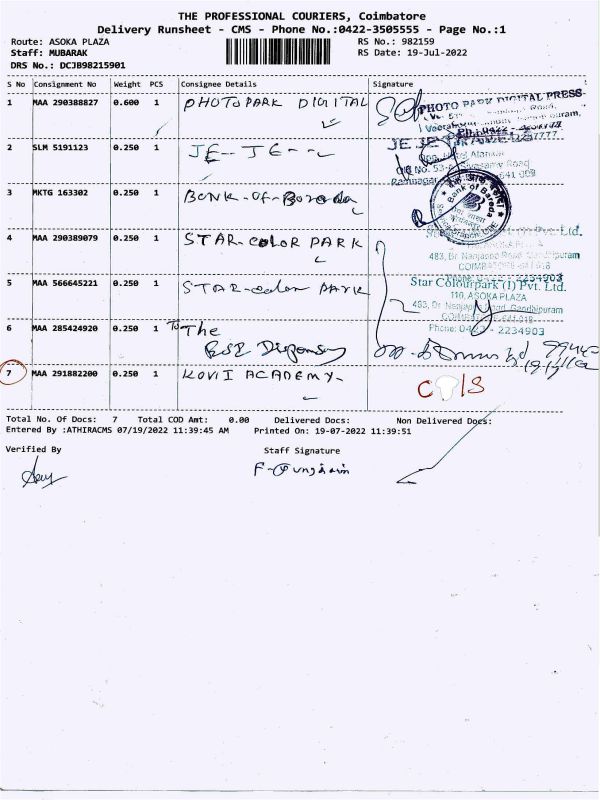 THE PROFESSIONAL COURIERS, Coimbatore
Delivery Runsheet - CMS - Phone No.:0422-3505555 - Page No.:1
Route: ASOKA PLAZA
RS No.: 982159
Staff: MUBARAK
RS Date: 19-Jul-2022
DRS No.: DCJB98215901
S No Consignment No Weight PCS Consignee Details Signature
1 MAA 290388827 0.600 1 PHOTOPARK DIGITAL
PHOTO PARK DIGITAL PRESS
2 SLM 5191123 0.250 1 JE-JE---
JE JE
3 MKTG 163302 0.250 1 BONK-OF-Baroda
Bank of Baroda
4 MAA 290389079 0.250 1 STAR-COLOR PARK
483, Dr. Nanjappa Road, Gandhipuram
5 MAA 566645221 0.250 1 STAR-color PARK
Star Colourpark (I) Pvt. Ltd.
110, ASOKA PLAZA
483, Dr. Nanjappa Road, Gandhipuram
Phone: 0422 - 2234903
6 MAA 285424920 0.250 1 To The
7 MAA 291882200 0.250 1 KOVII ACADEMY-
Total No. Of Docs: 7 Total COD Amt: 0.00 Delivered Docs: Non Delivered Docs:
Entered By :ATHIRACMS 07/19/2022 11:39:45 AM Printed On: 19-07-2022 11:39:51
Verified By
Staff Signature